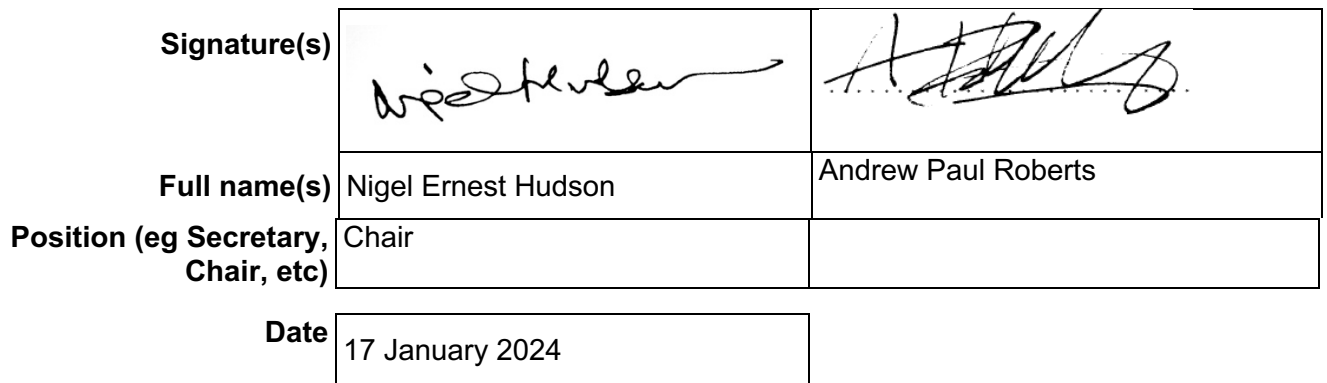 Signature(s)
Nigel Hudson
Full name(s) Nigel Ernest Hudson Andrew Paul Roberts
Position (eg Secretary, Chair
Chair, etc)
Date 17 January 2024